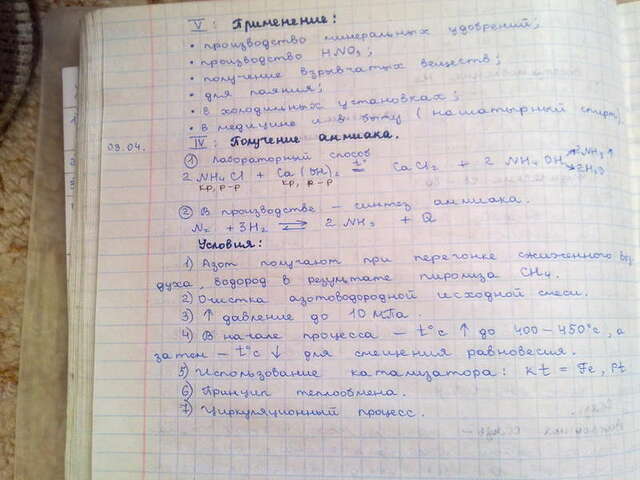 V: Применение:
• производство минеральных удобрений;
• производство HNO3;
• получение взрывчатых веществ;
• для паяния;
• в холодильных установках;
• в медицине и в быту (нашатырный спирт)
09.04. IV: Получение аммиака.
① Лабораторный способ
2 NH4Cl + Ca(OH)2 t°= CaCl2 + 2 NH4OH ↗NH3↑ ↘H2O
кр, р-р кр, р-р
② В производстве – синтез аммиака.
N2 + 3H2 ⇄ 2 NH3 + Q
Условия:
1) Азот получают при перегонке сжиженного воз
духа, водород в результате пиролиза CH4.
2) Очистка азотоводородной исходной смеси.
3) ↑ давление до 10 мПа.
4) В начале процесса – t°c ↑ до 400–450°c, а
затем – t°c ↓ для смещения равновесия.
5) Использование катализатора: kt = Fe, Pt
6) Принцип теплообмена.
7) Циркуляционный процесс.